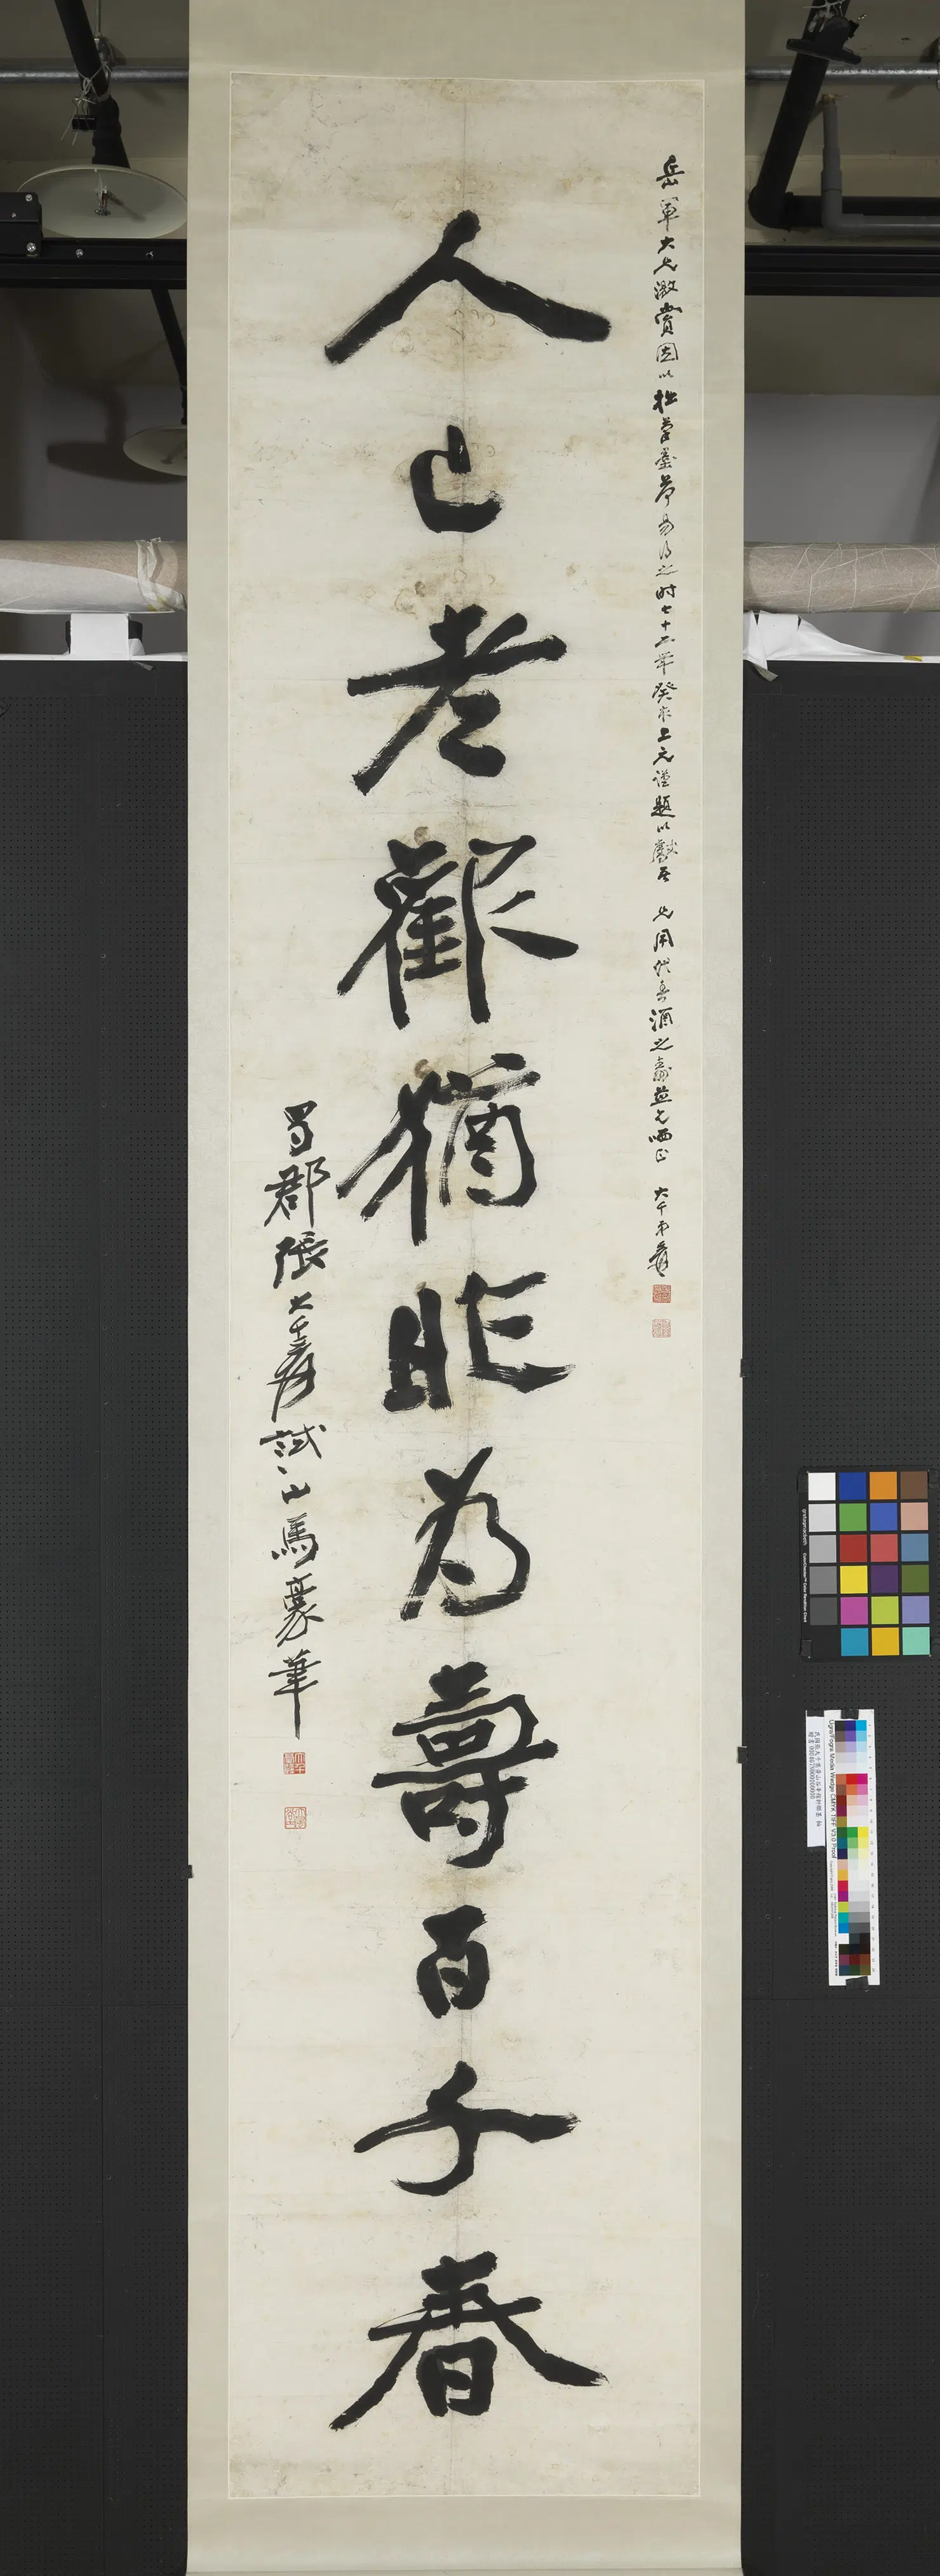 岳軍大兄激賞因以拙筆墨荷易得之時七十二年癸亥上元謹題以獻吾
兄用代春酒之壽並乞哂正
大千弟爰
人已老歡猶昨為壽百千春
蜀郡張大千爰試山馬豪筆